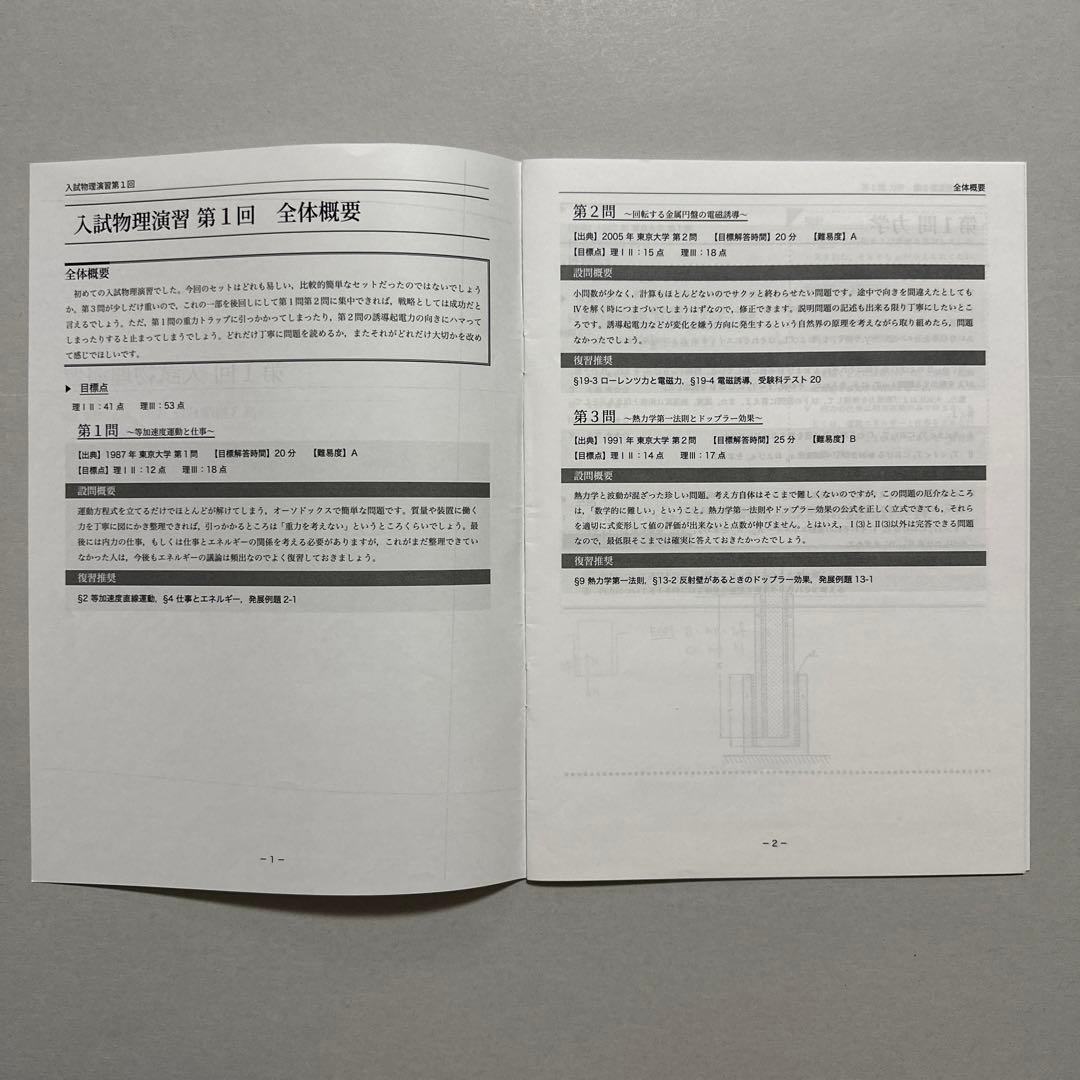 入試物理演習第1回
入試物理演習 第1回　全体概要
全体概要
初めての入試物理演習でした。今回のセットはどれも易しい，比較的簡単なセットだったのではないでしょう
か。第3問が少しだけ重いので，これの一部を後回しにして第1問第2問に集中できれば，戦略としては成功だと
言えるでしょう。ただ，第1問の重力トラップに引っかかってしまったり，第2問の誘導起電力の向きにハマって
しまったりすると止まってしまうでしょう。どれだけ丁寧に問題を読めるか，またそれがどれだけ大切かを改め
て感じでほしいです。
▶ 目標点
理ⅠⅡ：41点　理Ⅲ：53点
第1問 〜等加速度運動と仕事〜
【出典】1987年 東京大学 第1問　【目標解答時間】20分　【難易度】A
【目標点】理ⅠⅡ：12点　理Ⅲ：18点
設問概要
運動方程式を立てるだけでほとんどが解けてしまう，オーソドックスで簡単な問題です。質量や装置に働く
力を丁寧に図にかき整理できれば，引っかかるところは「重力を考えない」というところくらいでしょう。最
後には内力の仕事，もしくは仕事とエネルギーの関係を考える必要がありますが，これがまだ整理できてい
なかった人は，今後もエネルギーの議論は頻出なのでよく復習しておきましょう。
復習推奨
§2 等加速度直線運動，§4 仕事とエネルギー，発展例題 2-1
− 1 −
全体概要
第2問 〜回転する金属円盤の電磁誘導〜
【出典】2005年 東京大学 第2問　【目標解答時間】20分　【難易度】A
【目標点】理ⅠⅡ：15点　理Ⅲ：18点
設問概要
小問数が少なく，計算もほとんどないのでサクッと終わらせたい問題です。途中で向きを間違えたとしても
Ⅳを解く時につまづいてしまうはずなので，修正できます。説明問題の記述も出来る限り丁寧にしたいとこ
ろです。誘導起電力などが変化を嫌う方向に発生するという自然界の原理を考えながら取り組めたら，問題
なかったでしょう。
復習推奨
§19-3 ローレンツ力と電磁力，§19-4 電磁誘導，受験科テスト 20
第3問 〜熱力学第一法則とドップラー効果〜
【出典】1991年 東京大学 第2問　【目標解答時間】25分　【難易度】B
【目標点】理ⅠⅡ：14点　理Ⅲ：17点
設問概要
熱力学と波動が混ざった珍しい問題。考え方自体はそこまで難しくないのですが，この問題の厄介なところ
は，「数学的に難しい」ということ。熱力学第一法則やドップラー効果の公式を正しく立式できても，それら
を適切に式変形して値の評価が出来ないと点数が伸びません。とはいえ，Ⅰ(3)とⅡ(3)以外は完答できる問題
なので，最低限そこまでは確実に答えておきたかったでしょう。
復習推奨
§9 熱力学第一法則，§13-2 反射壁があるときのドップラー効果，発展例題 13-1
− 2 −